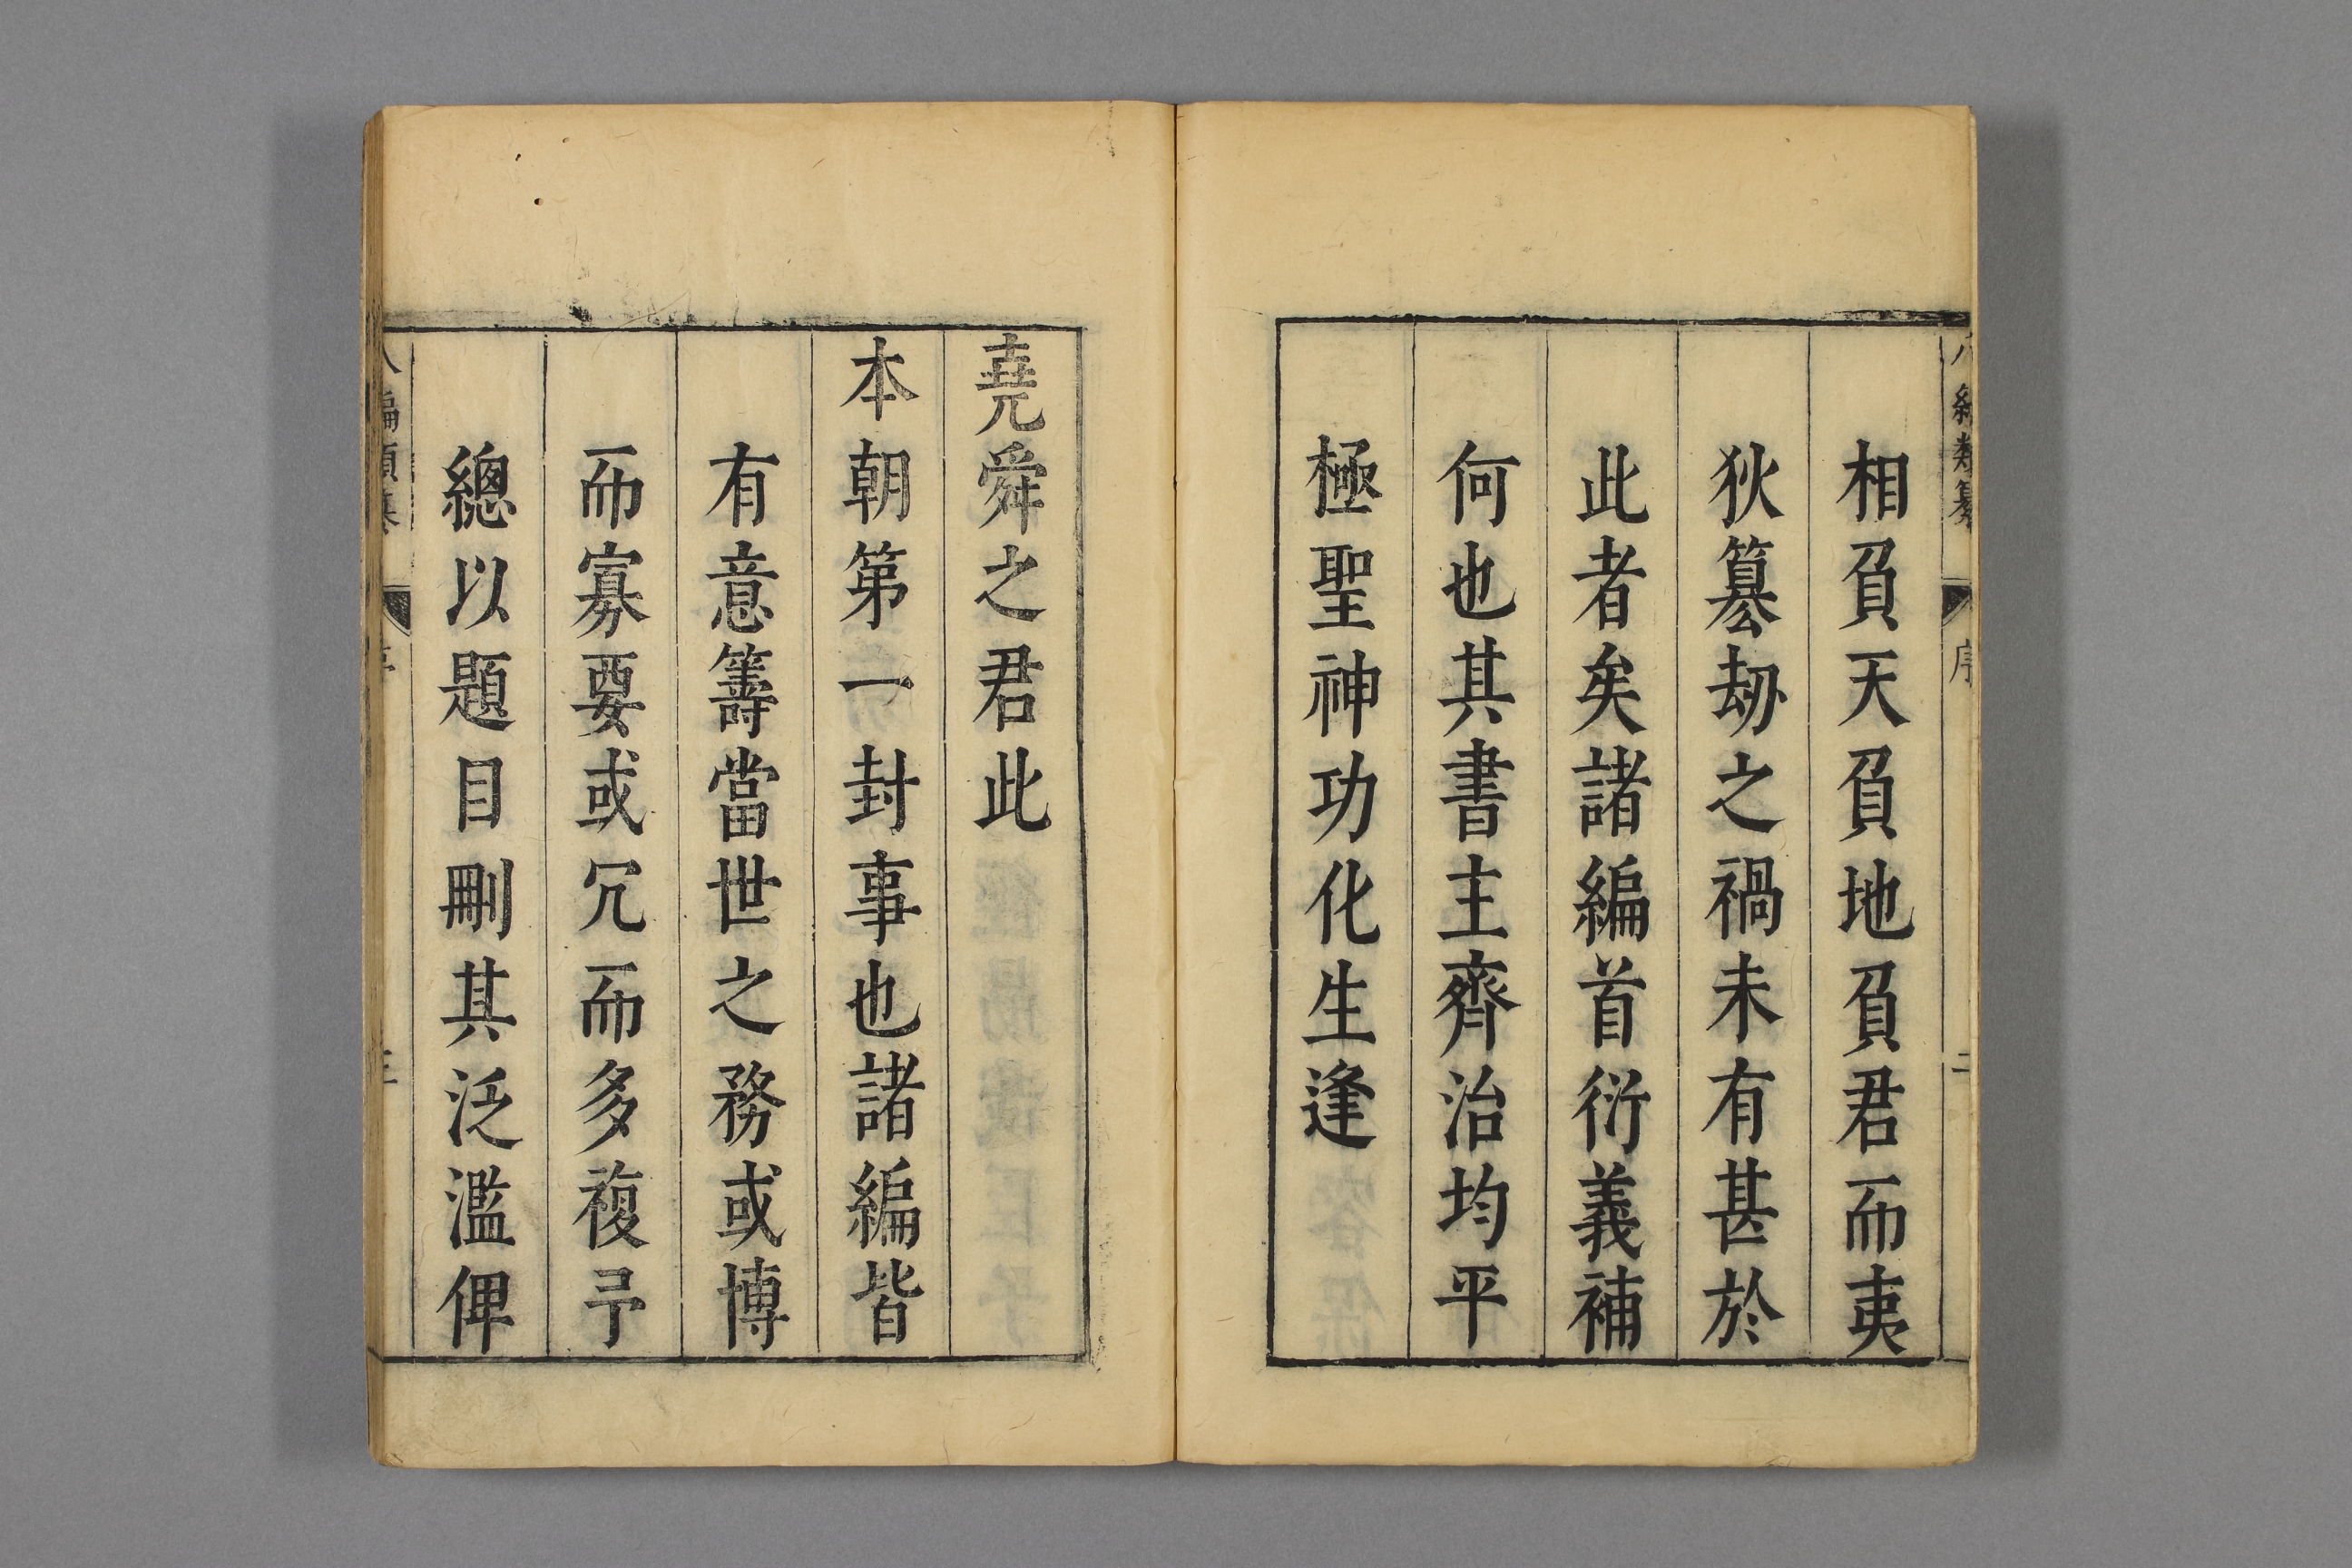 八編類纂 序 二
相負天負地負君而夷
狄篡劫之禍未有甚於
此者矣諸編首衍義補
何也其書主齊治均平
極聖神功化生逢
堯舜之君此
本朝第一封事也諸編皆
有意籌當世之務或博
而寡要或冗而多複予
總以題目刪其泛濫俾
八編類纂 序 三